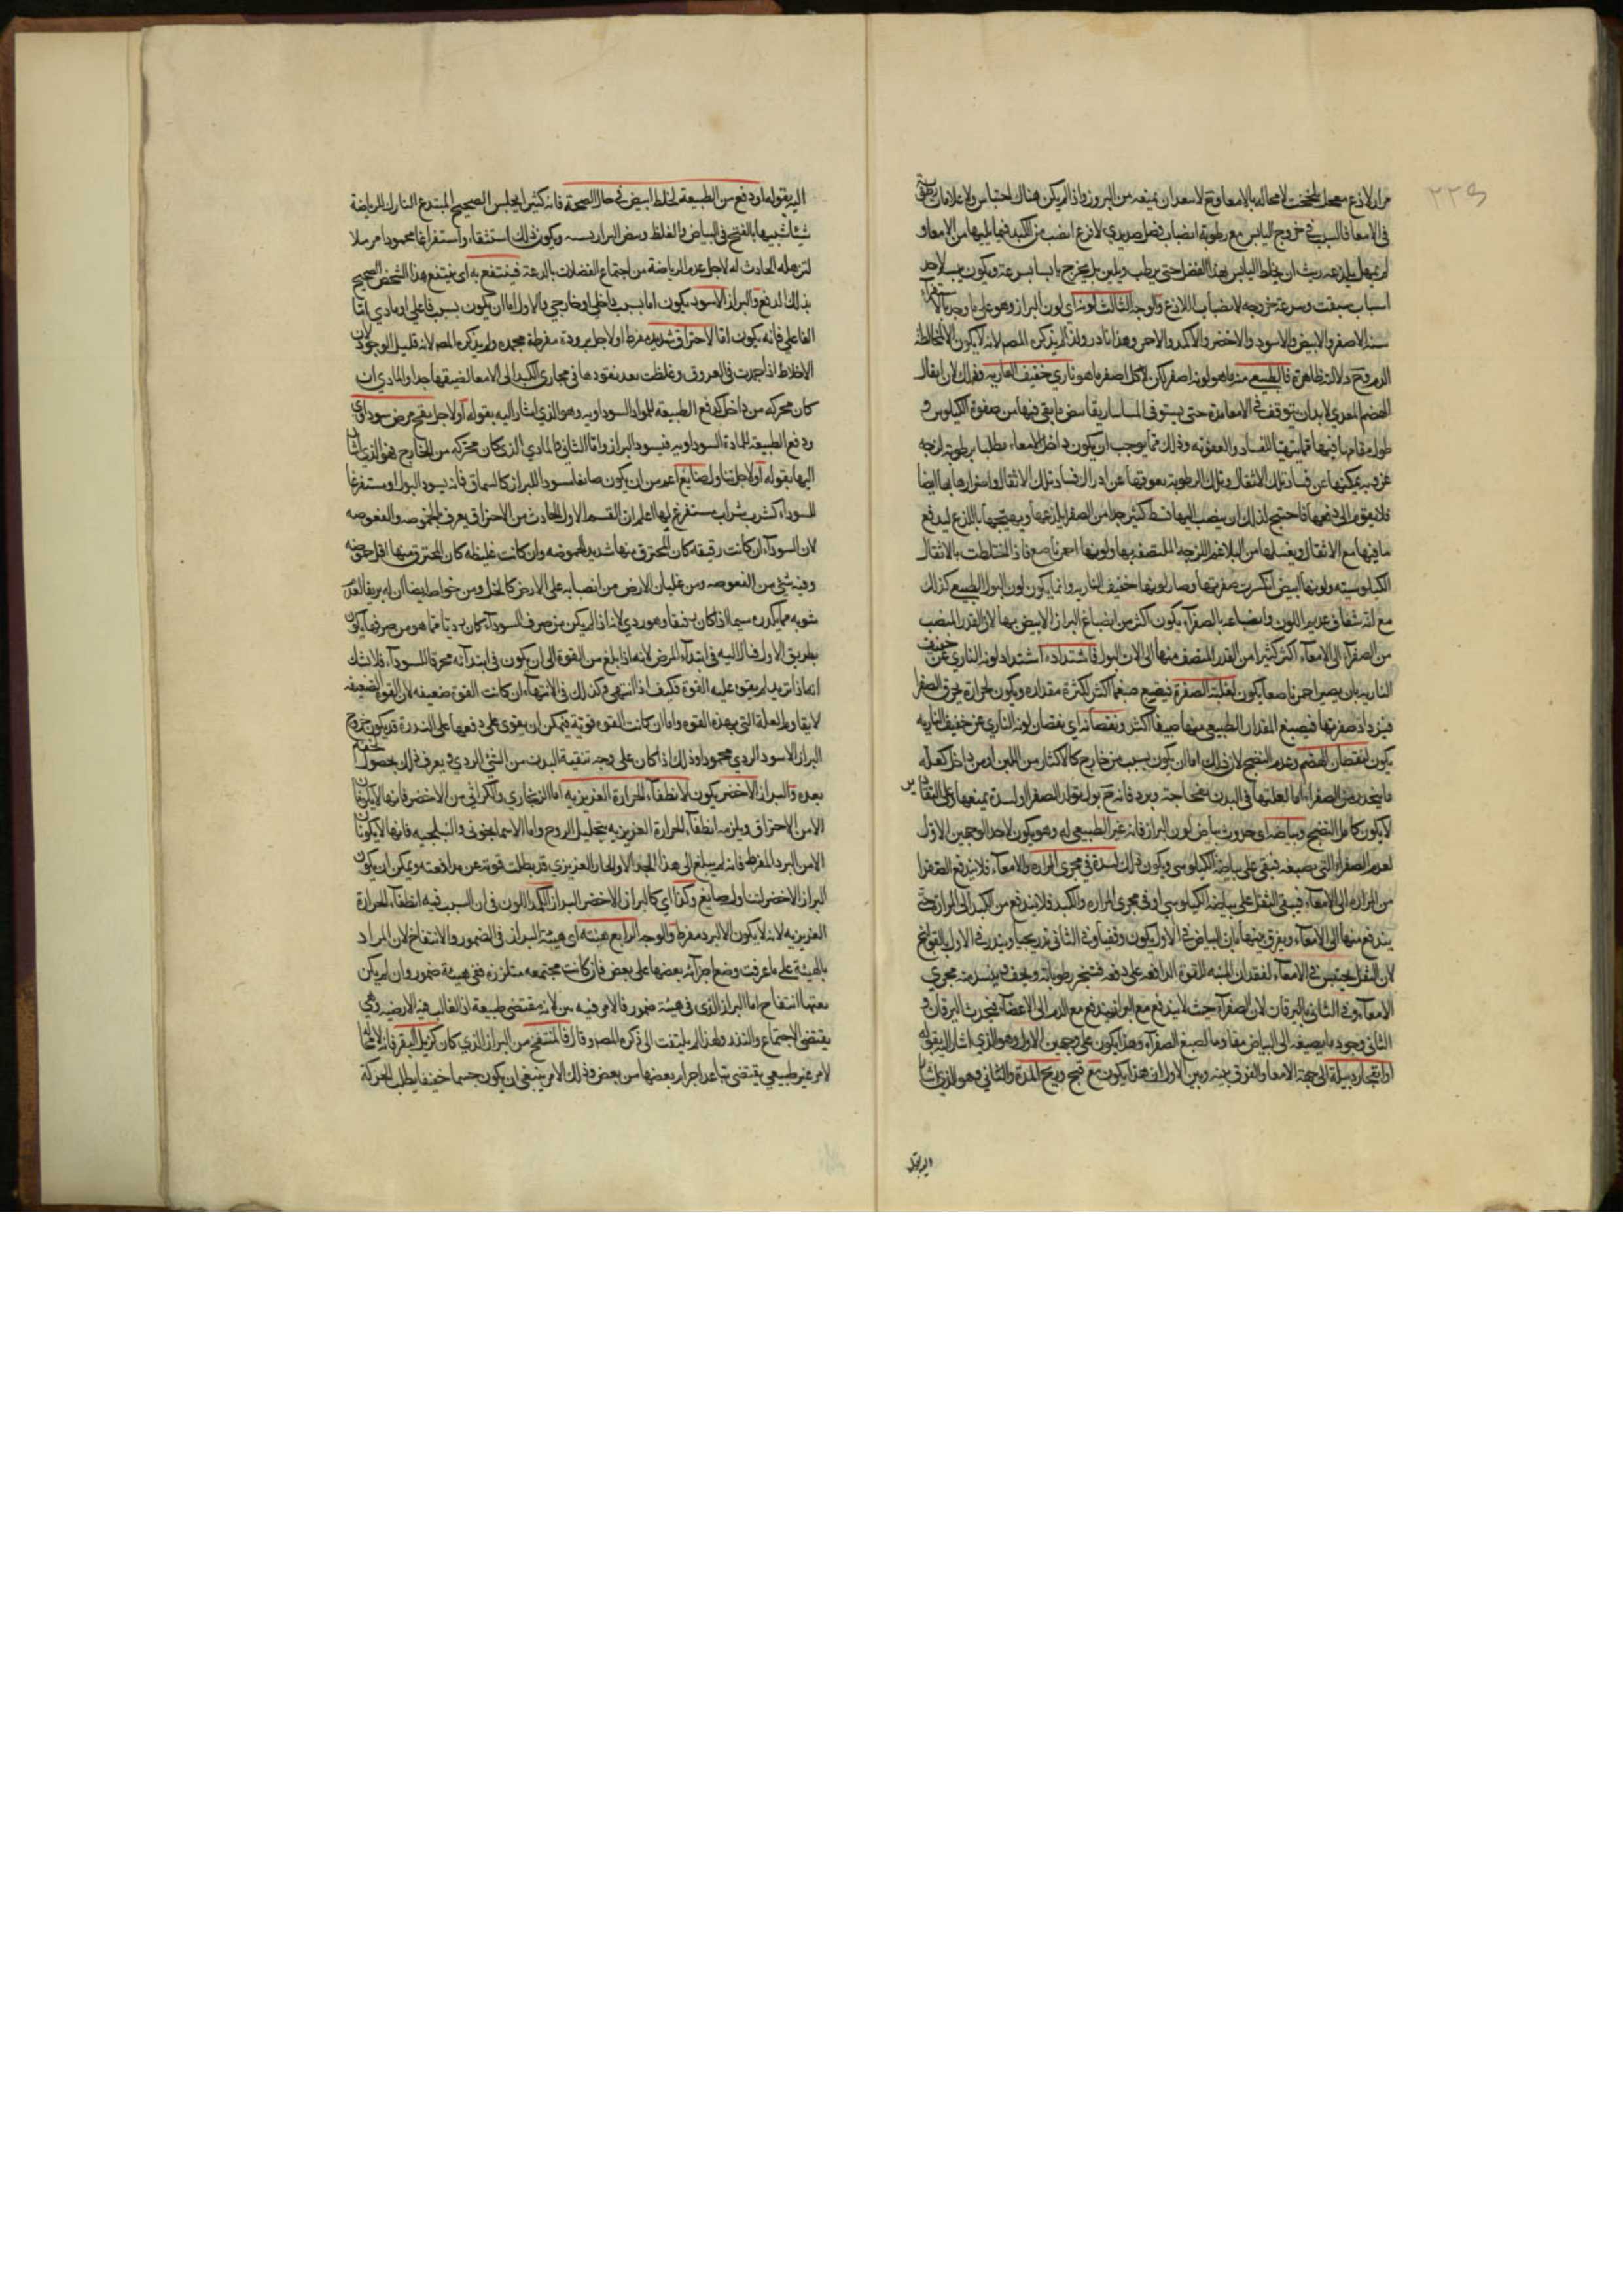 ٢٢٩
مرار لاذع معجل للخ لا محالة بالامعاء وح لا سعد ان يمنعه من البروز واذا لم يكن هناك احتباس ولا علامات
في الامعا فالسبب في خروج اليابس مع رطوبة انصباب فضل صديدي لاذع انصب من الكبد فيما يليها من الامعاء و
لم يمهل ريث ان يخلط اليابس بهذا الفضل حتى يرطب ويلين بل يخرج يابسا بسرعة ويكون يبسه لاحد
اسباب سبقت وسرعة خروجه لانصباب اللاذع والوجه الثالث لونه اي لون البراز وهو على ما وجد بالاستقراء
ستة الاصفر والابيض والاسود والاخضر والاكمد والاحمر وهذا نادر ولذا لم يذكره المص لانه لا يكون الا لمخالطة
الدم وح دلالته ظاهرة فالطبيعي منه ما هو لونه اصفر لكن لا كل اصفر ما هو ناري خفيف النارية وذلك لان اثفال
الهضم المعدي لا بد ان يتوقف في الامعا مدة حتى يستوفى الماساريقا ما بقي فيها من صفوة الكيلوس و
طول مقامها فيها مما يهيئها للفساد والعفونة وذلك مما يوجب ان يكون داخل الامعاء مطليا برطوبة لزجة
غروية يمكنها عن فساد تلك الاثقال وتلك الرطوبة يعوقها عن ادراك فساد تلك الاثقال واضرارها بها ايضا
فلا يقوم الى دفعها فاحتيج لذلك ان ينصب اليها قسط كثير جدا من الصفرا يلذعها ويهيجها باللذع ليدفع
ما فيها مع الاثقال ويغسلها من البلاغم اللزجة الملتصقة بها ولونها احمر ناصع فاذا اختلطت بالاثقال
الكيلوسية ولونها ابيض انكسرت صفرتها وصار لونها خفيف النارية وانما يكون لون البول الطبيعي كذلك
مع انه شفاف عديم اللون وانصباغه بالصفرآء يكون اكثر من انصباغ البراز الابيض بها لان القدر المنصب
من الصفرآء الى الامعآء اكثر كثيرا من القدر المنصف منها الى الات البول فاشتداده اشتداد لونه الناري عن خفيف
النارية بان يصير احمر ناصعا يكون لغلبة الصفرة فيصبغ صبغا اكثر لكثرة مقداره ويكون لحرارة يحرق الصفرا
فيزداد صفرتها فيصبغ المقدار الطبيعي منها صبغا اكثر ونقصانه اي نقصان لونه الناري عن خفيف النارية
يكون لنقصان الهضم وعدم النضج لان ذلك اما ان يكون بسبب من خارج كالاكثار من اللبن او من داخل كقلة
ما ينحدر من الصفراء اما لقلتها في البدن لفجاجته وبرده فانه ح يولد الصفرا او لسدة يمنعها وعلى التقادير
لا يكون كامل النضج وبياضه اي حدوث بياض لون البراز فانه غير الطبيعي له وهو يكون لاحد الوجهين الاول
لعدم الصفرا التي يصبغه فيبقى على بياضه الكيلوسي ويكون ذلك لسدة في مجرى المراره والامعاء فلا يندفع الصفرا
من المرارة الى الامعآء فيبقى الثفل على بياضه الكيلوسي او في مجرى المراره والكبد فلا يندفع من الكبد الى المرارة حتى
يندفع منها الى الامعآء ويفرق بينهما بان البياض في الاول يكون وقفيا وفي الثاني تدريجيا وينذر في الاول بالقولنج
لان الثفل يحتبس في الامعآء لفقدان المنبه للقوة الدافعة على دفعه فتتبخر رطوباته ويجف فينسد منه مجرى
الامعآء وفي الثاني باليرقان لان الصفرآء حيث لا يندفع مع البراز فيندفع مع الدم الى الاعضآء فيحدث اليرقان و
الثاني وجود ما يصبغه الى البياض مقاوما لصبغ الصفرآء وهذا يكون على وجهين الاول وهو الذي اشار اليه بقوله
او انفجار دبيلة الى جهة الامعا والفرق بينه وبين الاول ان هذا يكون مع قيح وريح المدة والثاني وهو الذي اشار
اليه بقوله
اليه بقوله او دفع من الطبيعة لخلط ابيض في حال الصحة فانه كثيرا يجلس الصحيح المبتدع التارك للرياضة
شيئا شبيها بالقيح في البياض والغلظ وسض البراز بسه ويكون ذلك استنقاء واستفراغا محمودا مزيلا
لترهله الحادث له لاجل عدم الرياضة من اجتماع الفضلات بالدعة فينتفع به اي ينتفع هذا الشخص الصحيح
بذلك الدفع والبراز الاسود يكون اما بسبب داخلي او خارجي والاول اما ان يكون بسبب فاعلي او مادي اما
الفاعلي فانه يكون اما لاحتراق شديد مفرط او لاجل برودة مفرطة مجمده ولم يذكره المص لانه قليل الوجود لان
الاخلاط اذا جمدت في العروق وغلظت بعد نفوذها في مجاري الكبد الى الامعا لضيقها جدا والمادي ان
كان محركه من داخل كدفع الطبيعة للمواد السوداوية وهو الذي اشار اليه بقوله او لاجل نضج مرض سوداوي
ودفع الطبيعة المادة السوداوية فيسود البراز واما الثاني فالمادي الذي كان محركه من الخارج فهو الذي اشار
اليها بقوله او لاجل تناول صابغ اعم من ان يكون صابغا اسود اللبراز كالسماق فانه يسود البول او مستفرغا
للسوداء كشرب شراب يستفرغ لها اعلم ان القسم الاول الحادث من الاحتراق يعرف بالحموضه والعفوصه
لان السودآء ان كانت رقيقة كان المحترق منها شديد الحموضه وان كانت غليظه كان المحترق منها اقل حموضه
وفيه شئ من العفوصه ومن غليان الارض من انصبابه على الارض كالخل ومن خواصه ايضا ان له بريقا لعدم
شوبه مما يكدره سيما اذا كان رقيقا وهو ردي لانه اذا لم يكن من صرف السودآء كان رديا فما هو من صرفها يكون
بطريق الاولى فدلاليه في ابتدآء المرض لانه اذا بلغ من القوة الى ان يكون في ابتدآئه محرقا للسودآء فلا شك
انه اذا تزيد لم يقو عليه القوة فكيف اذا انتهى وكذلك في الانتهآء ان كانت القوة ضعيفه لان القوة الضعيفه
لا يقاوم العلة التي بهذه القوه واما ان كانت القوه قوية فيمكن ان يقوى على دفعها على الندرة قد يكون خروج
البراز الاسود الردي محمودا وذلك اذا كان على وجه تنقية البدن من الشئ الردي ويعرف ذلك بحصول الخف
بعده والبراز الاخضر يكون لانطفآء الحرارة الغريزيه اما الزنجاري والكراثي من الاخضر فانهما لا يكونان
الا من الاحتراق ويلزمه انطفآء الحرارة الغريزيه بتحليل الروح واما الاسمانجوني والنيلجيه فانهما لا يكونان
الا من البرد المفرط فانه لم يبلغ الى هذا الحد الا والحار الغريزي قد بطلت قوته عن مدافعته ويمكن ان يكون
البراز الاخضر لتناول صابغ وكذا اي كالبراز الاخضر البراز الكمد اللون في ان السبب فيه انطفآء الحرارة
الغريزيه لانه لا يكون الا لبرد مفرط والوجه الرابع هيئته اي هيئة البراز في الضمور والانتفاخ لان المراد
بالهيئة على ما عرفت وضع اجزآئه بعضها على بعض فان كانت مجتمعه متلززه فهي هيئة ضمور وان لم يكن
معتها انتفاخ اما البراز الذي في هيئة ضمور فالامر فيه بين لانه مقتضى طبيعة اذ الغالب فيه الارضيه وهي
يقتضي الاجتماع والتلزز ولهذا لم يلتفت الى ذكره المص وقال فالمنتفخ من البراز الذي كان كزبل البقر فانه
لامر غير طبيعي يقتضي تباعد اجزآء بعضها من بعض وذلك الامر ينبغي ان يكون جسما خفيفا يطلب الحركة